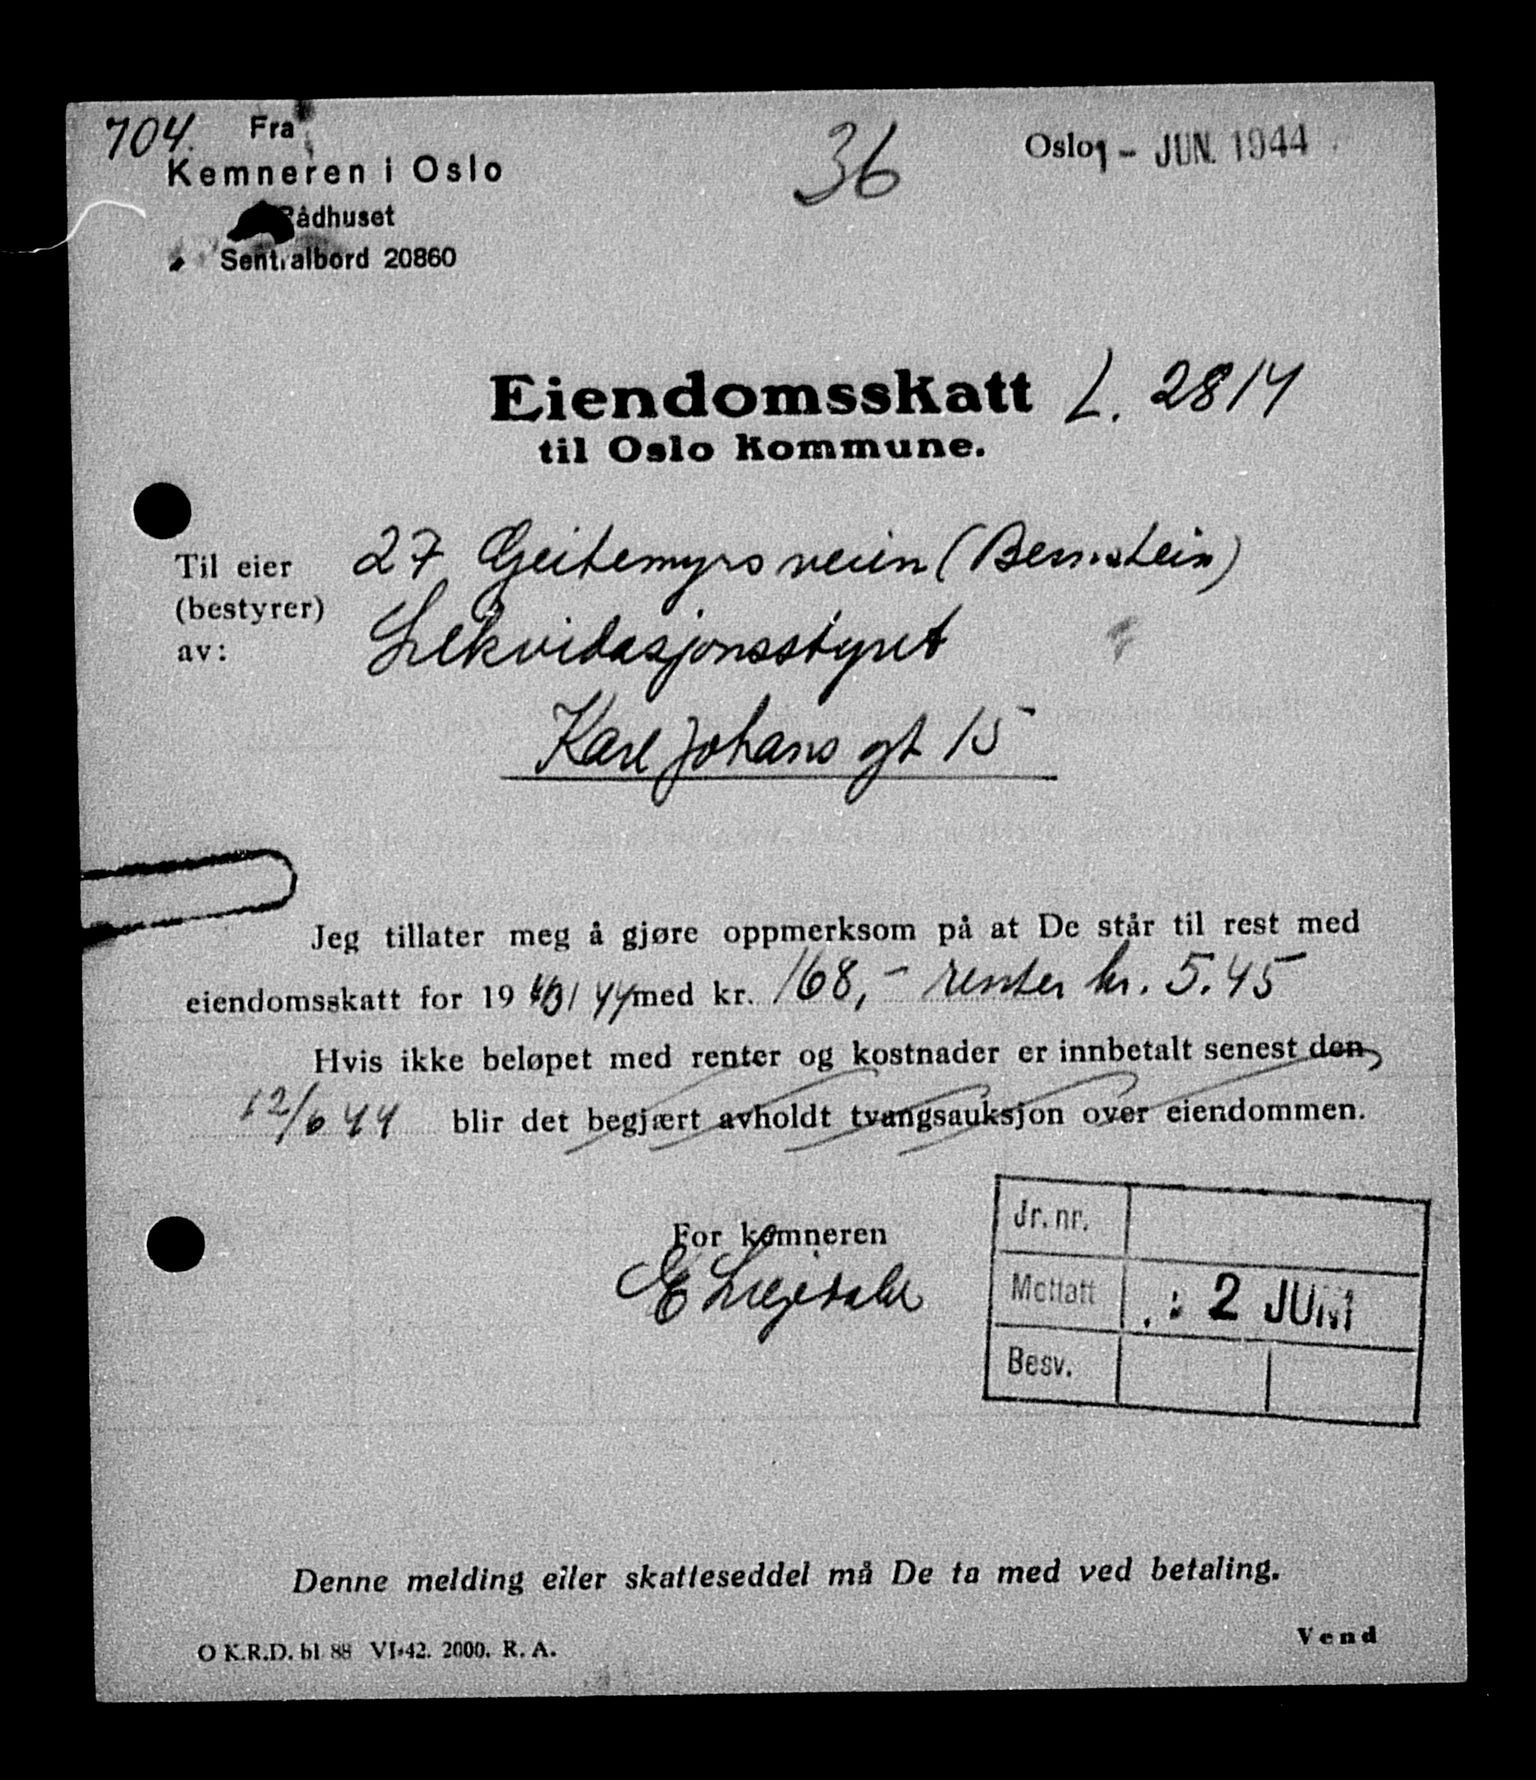 704. Fra
Kemneren i Oslo
Rådhuset
Sentralbord 20860
36
Oslo 1 - JUN. 1944
Eiendomsskatt L. 2814
til Oslo Kommune.
Til eier 27 Geitemyrsveien (Bernstein)
(bestyrer) Likvidasjonsstyret
av:
Karl Johans gt 15
Jeg tillater meg å gjøre oppmerksom på at De står til rest med
eiendomsskatt for 19 44 med kr. 168,- renter kr. 5.45
Hvis ikke beløpet med renter og kostnader er innbetalt senest den
12/6 44 blir det begjært avholdt tvangsauksjon over eiendommen.
For kemneren
Jr. nr.
Mottatt 2 JUNI
Besv.
Denne melding eller skatteseddel må De ta med ved betaling.
Vend
O K.R.D. bl 88 VI-42. 2000. R. A.